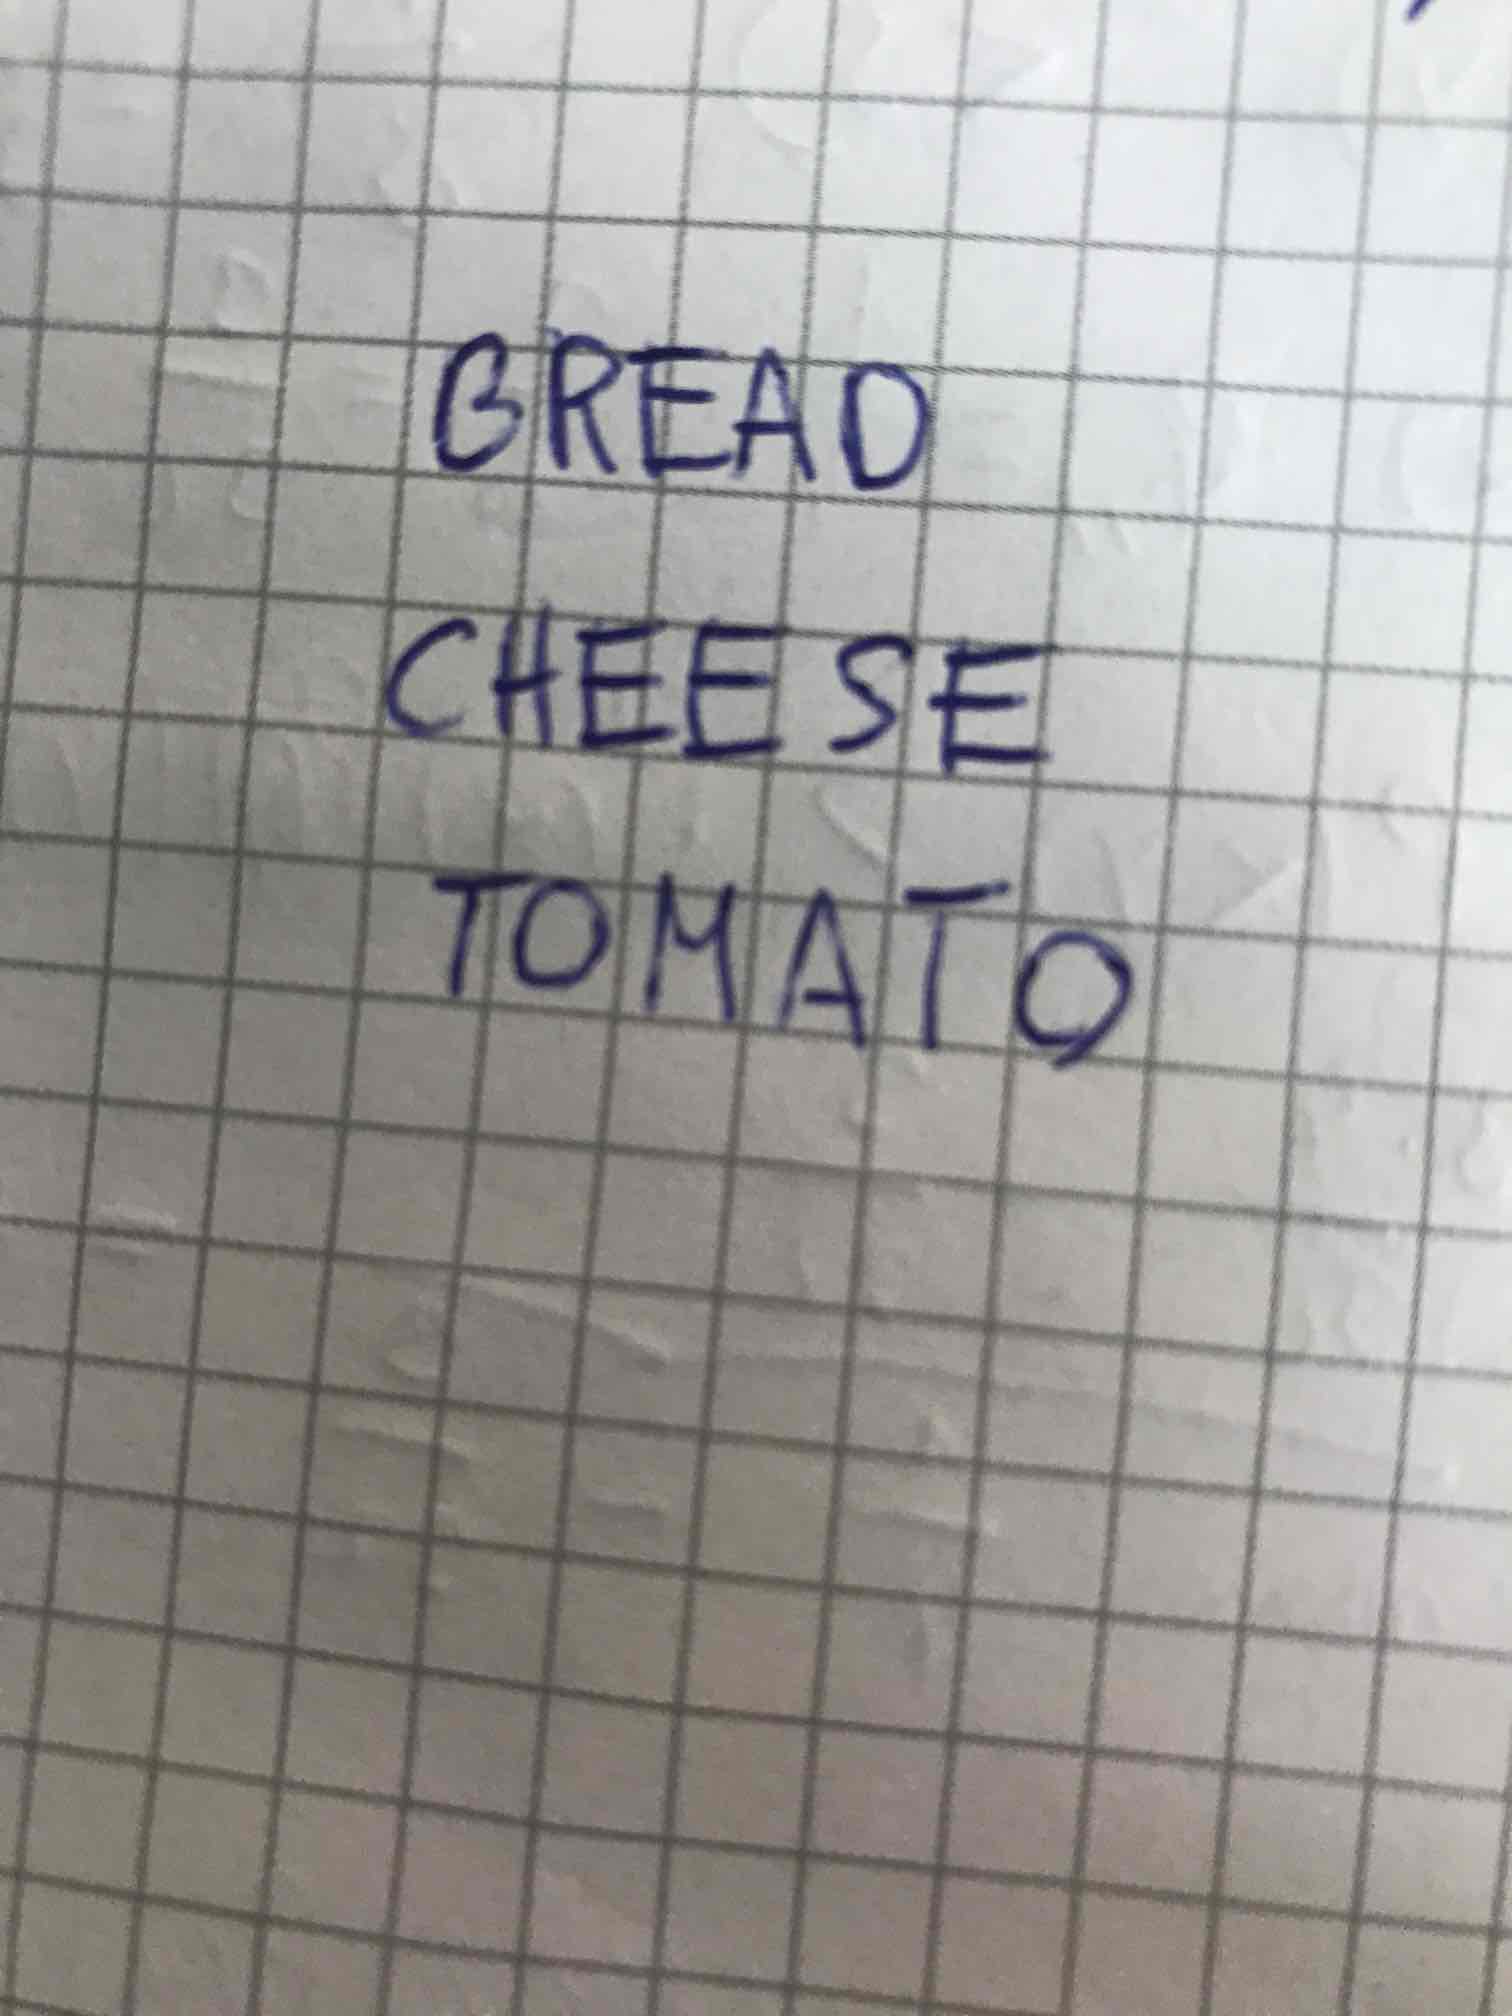 BREAD
CHEESE
TOMATO